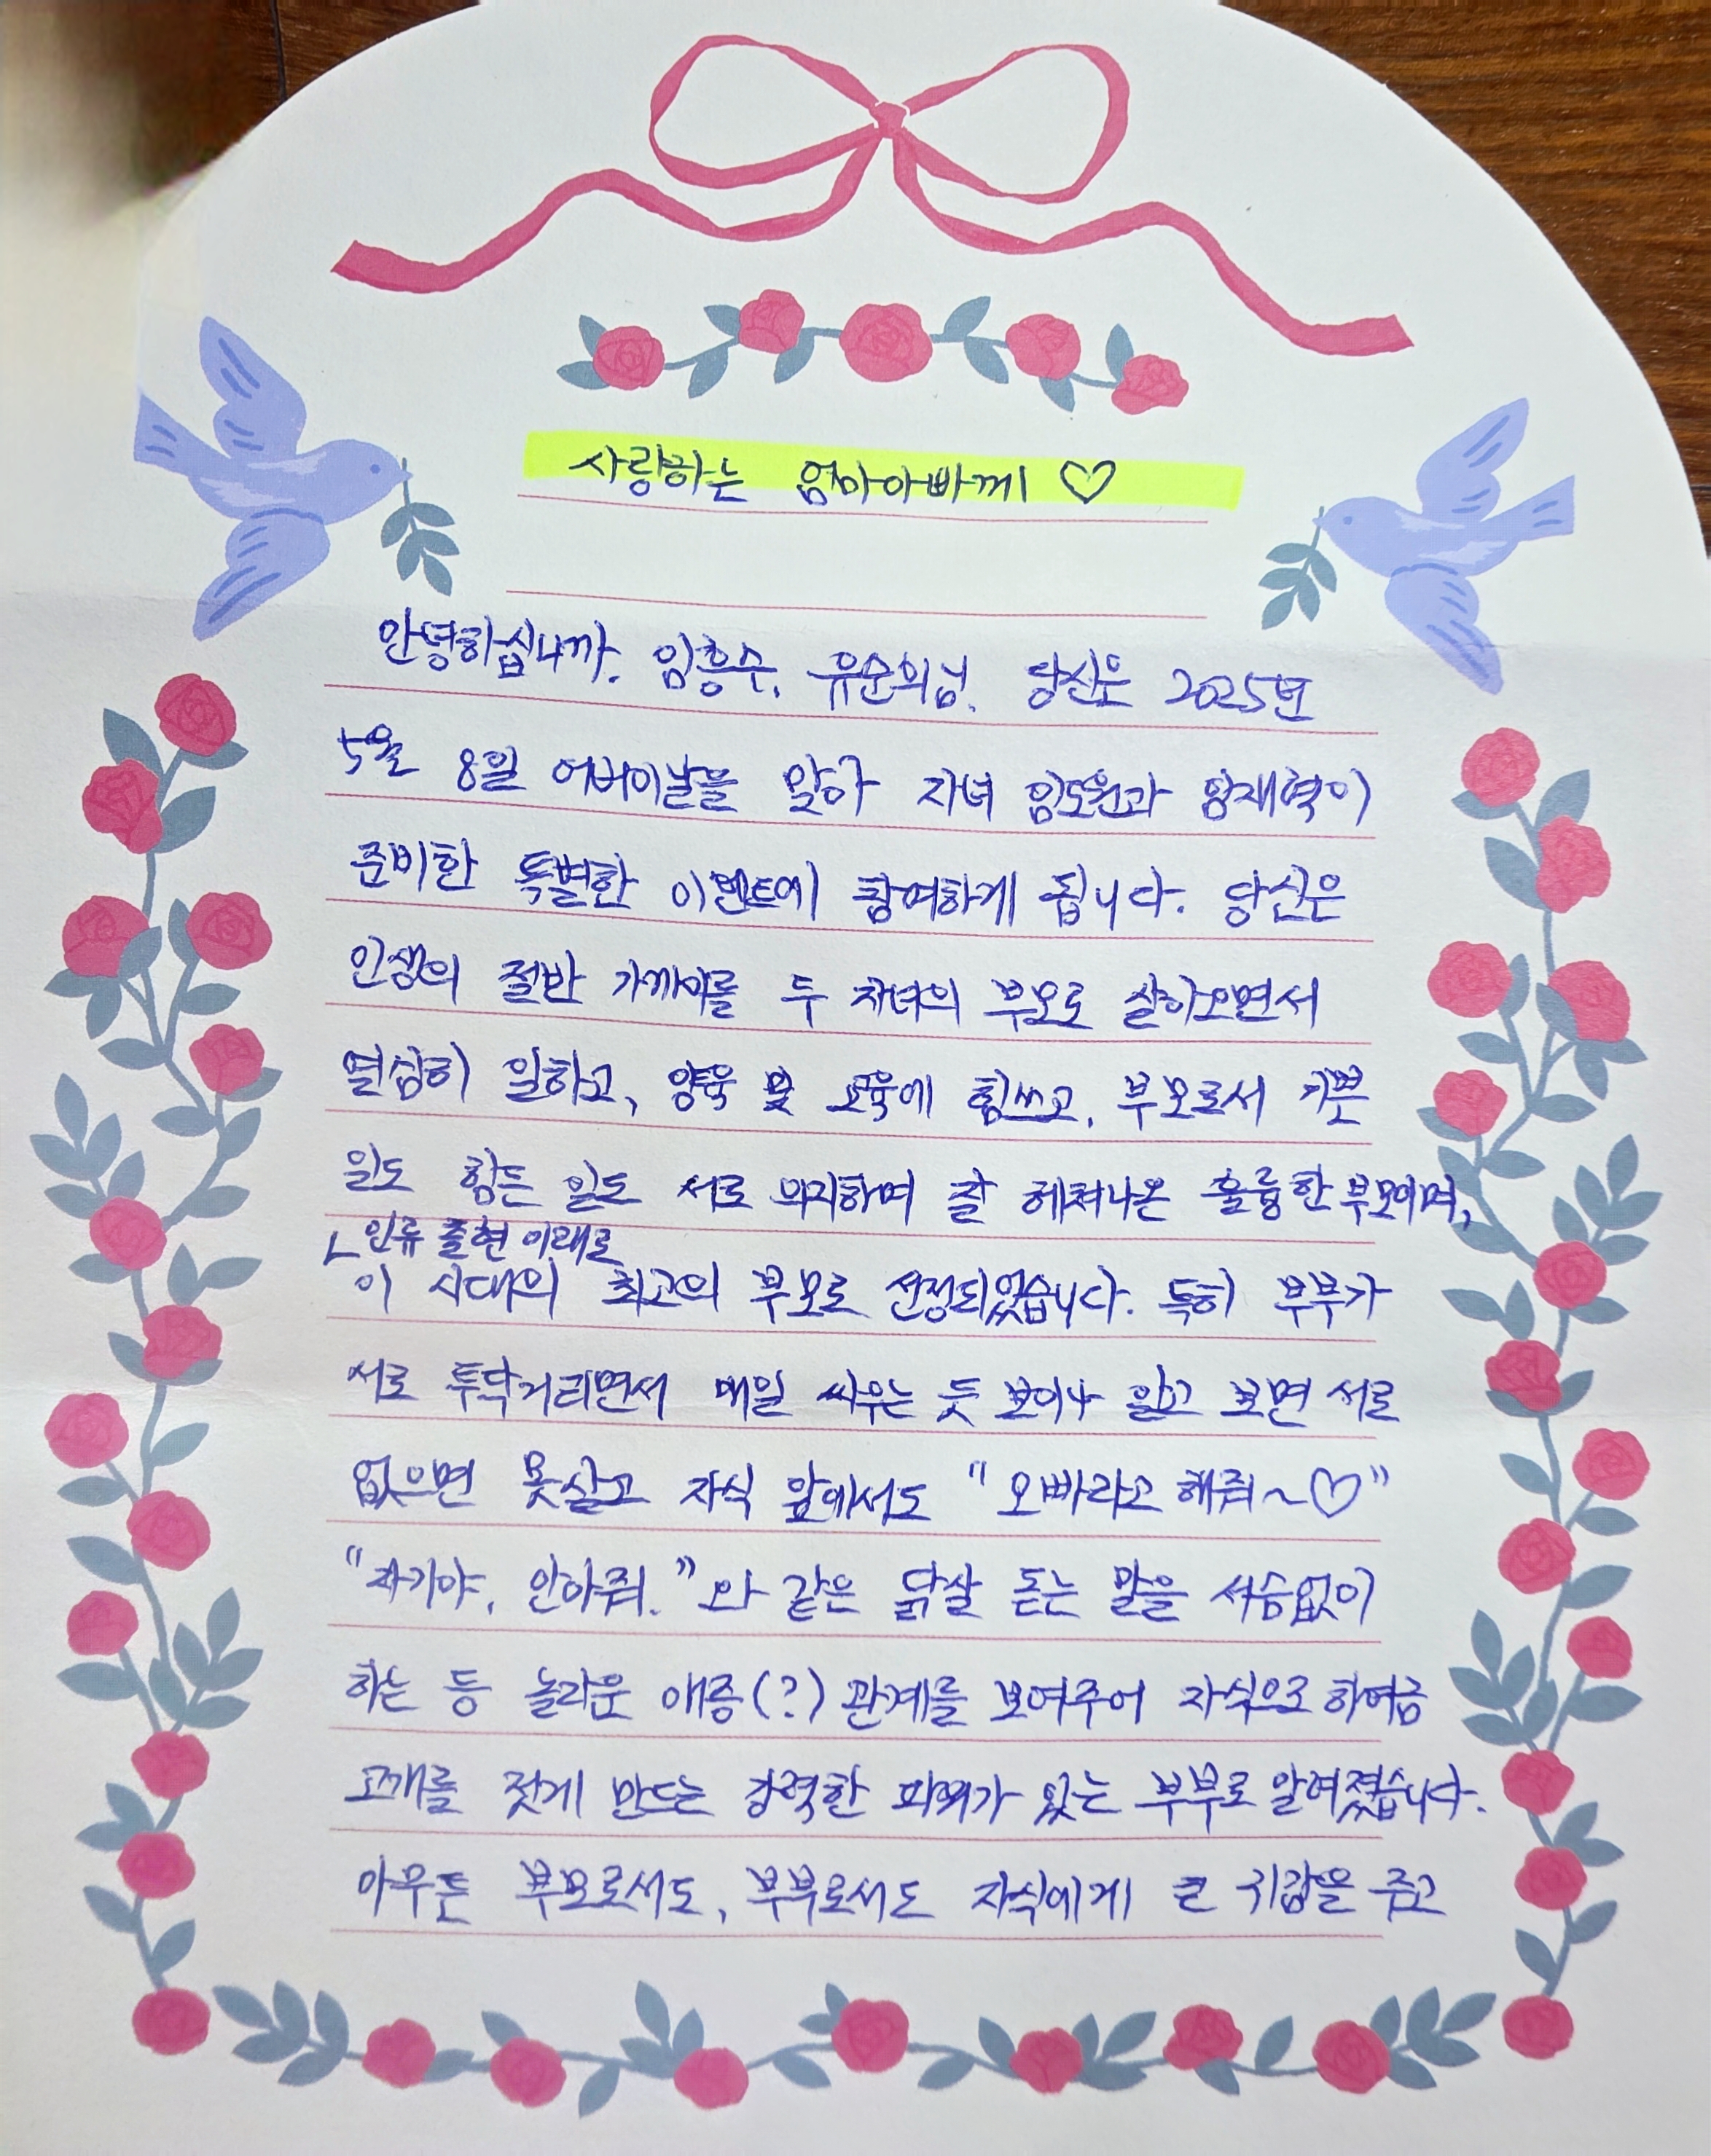 사랑하는 엄마아빠께 ♡
안녕하십니까. 임흥수, 유순의님. 당신은 2025년
5월 8일 어버이날을 맞아 자녀 임도원과 임재혁이
준비한 특별한 이벤트에 참여하게 됩니다. 당신은
인생의 절반 가까이를 두 자녀의 부모로 살아오면서
열심히 일하고, 양육 및 교육에 힘쓰고, 부모로서 기쁜
일도 힘든 일도 서로 의지하며 잘 헤쳐나온 훌륭한 부모이며,
ㄴ인류 출현 이래로
이 시대의 최고의 부모로 선정되었습니다. 특히 부부가
서로 투닥거리면서 매일 싸우는 듯 보이나 알고 보면 서로
없으면 못살고 자식 앞에서도 "오빠라고 해줘~♡"
"자기야, 안아줘."와 같은 닭살 돋는 말을 서슴없이
하는 등 놀라운 애증(?)관계를 보여주어 자식으로 하여금
고개를 젓게 만드는 강력한 파워가 있는 부부로 알려졌습니다.
아무튼 부모로서도, 부부로서도 자식에게 큰 귀감을 주고